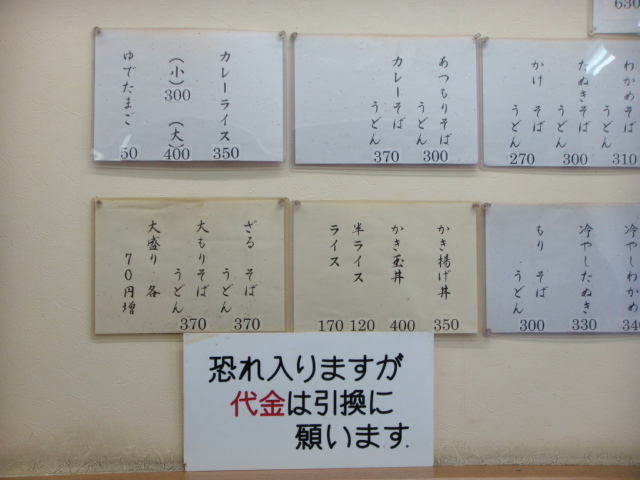 630
わかめそば うどん 310
たぬきそば うどん 300
かけ そば うどん 270
あつもりそば うどん 300
カレーそば うどん 370
カレーライス 350
(小) 300 (大) 400
ゆでたまご 50
冷やしわかめ 340
冷やしたぬき 330
もり そば うどん 300
かき揚げ丼 350
かき玉丼 400
半ライス 120
ライス 170
ざる そば うどん 370
大もりそば うどん 370
大盛り 各 70円増
恐れ入りますが
代金は引換に
願います.